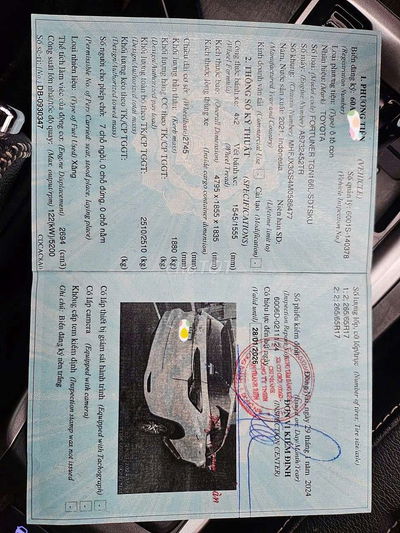 1. PHƯƠNG TIỆN (VEHICLE)
Biển đăng ký: 60A
(Registration Number)
Số quản lý: 6001S-140378
(Vehicle Inspection No.)
Loại phương tiện: (Type) ô tô con
Nhãn hiệu: (Mark) TOYOTA
Số loại: (Model code) FORTUNER
Số máy: (Engine Number)
Số khung: (Chassis Number)
Năm, Nước sản xuất: 2021, Indonesia
(Manufactured Year and Country)
Niên hạn SD:
(Lifetime limit to)
Kinh doanh vận tải (Commercial Use)
Cải tạo (Modification)
2. THÔNG SỐ KỸ THUẬT (SPECIFICATIONS)
Công thức bánh xe: 4x2
(Wheel Formula)
Vết bánh xe: 1545/1555 (mm)
(Wheel Tread)
Kích thước bao: (Overall Dimension) 4795 x 1855 x 1835 (mm)
Kích thước lòng thùng xe (mm)
(Inside cargo container dimension)
Chiều dài cơ sở: (Wheelbase) 2745 (mm)
Khối lượng bản thân: (Kerb mass) 1880 (kg)
Khối lượng hàng CC theo TK/CP TGGT: (kg)
(Design/Authorized pay load)
Khối lượng toàn bộ theo TK/CP TGGT: 2510/2510 (kg)
(Design/Authorized total mass)
Khối lượng kéo theo TK/CP TGGT: (kg)
(Design/Authorized towed mass)
Số người cho phép chở: 7 chỗ ngồi, 0 chỗ đứng, 0 chỗ nằm
(Permissible No. of Pers Carried: seat, stood place, laying place)
Loại nhiên liệu: (Type of Fuel Used) Xăng
Thể tích làm việc của động cơ: (Engine Displacement) 2694 (cm3)
Công suất lớn nhất/tốc độ quay: (Max. output/rpm) 122(kW)/5200
Số sê-ri: (No.) DB-0990347
Số lượng lốp, cỡ lốp/trục (Number of tires, Tire size/axle)
1: 2; 265/65R17
2: 2; 265/65R17
Số phiếu kiểm định
(Inspection Report No)
Có hiệu lực đến hết ngày
(Valid until) 28/01/2026
Đồng Nai, ngày 29 tháng 2024
(Issued on: Day/Month/Year)
ĐƠN VỊ KIỂM ĐỊNH
(INSPECTION CENTER)
Có lắp thiết bị giám sát hành trình (Equipped with Tachograph)
Có lắp camera (Equipped with camera)
Không cấp tem kiểm định (Inspection stamp was not issued)
Ghi chú: Biển đăng ký nền trắng